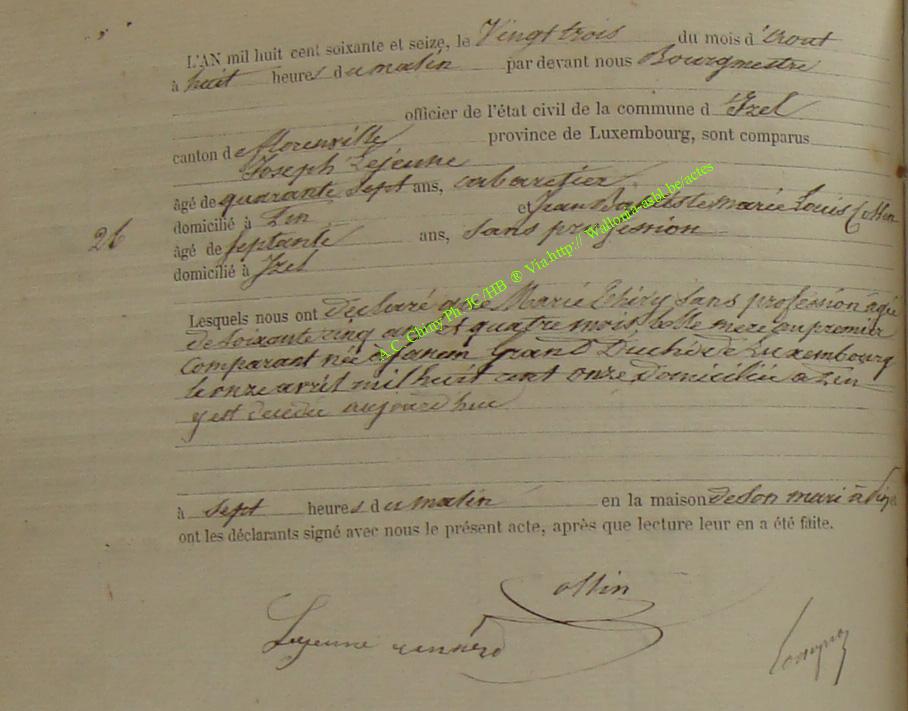 L'AN mil huit cent soixante et seize, le Vingt trois du mois d'Aout
à huit heures du matin par devant nous Bourgmestre
officier de l'état civil de la commune d'Izel
canton de florenville province de Luxembourg, sont comparus
Joseph Lejeune
âgé de quarante sept ans, cabaretier
domicilié à Pin et Jean Baptiste marie Louis Collin
26
âgé de septante ans, sans profession
domicilié à Izel
Lesquels nous ont déclaré que Marie Thiry sans profession agée
de soixante cinq ans et quatre mois, belle mere au premier
comparant née à Sanem Grand Duché de Luxembourg
le onze avril mil huit cent onze domiciliée a Pin
y est decedee aujourd hui
à sept heures du matin en la maison de son mari à Pin
ont les déclarants signé avec nous le présent acte, après que lecture leur en a été faite.
Collin
Lejeune
A.C. Chiny Ph. JC/HB ® Via http:// Wallonia-asbl.be/actes